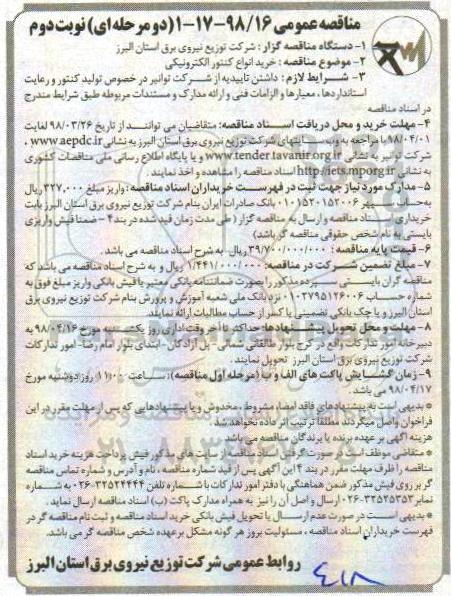 مناقصه عمومی ۹۸/۱۶-۱۷-۱ (دو مرحله ای) نوبت دوم
۱- دستگاه مناقصه گزار: شرکت توزیع نیروی برق استان البرز
۲- موضوع مناقصه: خرید انواع کنتور الکترونیکی
۳- شرایط لازم: داشتن تاییدیه از شرکت توانیر در خصوص تولید کنتور و رعایت
استانداردها، معیارها و الزامات فنی و ارائه مدارک و مستندات مربوطه طبق شرایط مندرج
در اسناد مناقصه
۴- مهلت خرید و محل دریافت اسناد مناقصه: متقاضیان می توانند از تاریخ ۹۸/۰۳/۲۶ لغایت
۹۸/۰۴/۰۱ با مراجعه به وب سایتهای شرکت توزیع نیروی برق استان البرز به نشانی www.aepdc.ir ،
شرکت توانیر به نشانی www.tender.tavanir.org.ir و یا پایگاه اطلاع رسانی ملی مناقصات کشوری
به نشانی http://iets.mporg.ir اسناد مناقصه را مشاهده و اخذ نمایند.
۵- مدارک مورد نیاز جهت ثبت در فهرست خریداران اسناد مناقصه: واریز مبلغ ۳۲۷,۰۰۰ ریال
به حساب سپهر ۰۱۰۱۵۲۰۱۵۲۰۰۶ بانک صادرات ایران بنام شرکت توزیع نیروی برق استان البرز بابت
خریداری اسناد مناقصه و ارسال به مناقصه گزار (طی مدت زمان قید شده در بند ۴ - ضمنا فیش واریزی
بایستی به نام شخص حقوقی مناقصه گر باشد)
۶- قیمت پایه مناقصه: ۳۹/۷۰۰/۰۰۰/۰۰۰ ریال به شرح اسناد مناقصه می باشد.
۷- مبلغ تضمین شرکت در مناقصه: ۱/۴۴۱/۰۰۰/۰۰۰ ریال و به شرح اسناد مناقصه می باشد که
مناقصه گران بایستی سپرده مذکور را بصورت ضمانتنامه بانکی معتبر یا فیش بانکی واریز مبلغ فوق به
شماره حساب ۰۱۰۲۷۹۵۱۲۶۰۰۶ نزد بانک ملی شعبه آموزش و پرورش بنام شرکت توزیع نیروی برق
استان البرز و یا چک بانکی تضمینی یا کسر از حساب مطالبات ارائه نمایند.
۸- مهلت و محل تحویل پیشنهادها: حداکثر تا آخر وقت اداری روز یکشنبه مورخ ۹۸/۰۴/۱۶ به
دبیرخانه امور تدارکات واقع در کرج بلوار طالقانی شمالی-پل آزادگان-ابتدای بلوار امام رضا-امور تدارکات
شرکت توزیع نیروی برق استان البرز تحویل نمایند.
۹- زمان گشایش پاکت های الف و ب (مرحله اول مناقصه): ساعت ۱۱:۰۰ روز دوشنبه مورخ
۹۸/۰۴/۱۷ می باشد.
* بدیهی است به پیشنهادهای فاقد امضاء، مشروط، مخدوش و یا پیشنهادهایی که پس از مهلت مقرر در این
فراخوان واصل میگردند مطلقا ترتیب اثر داده نخواهد شد.
هزینه آگهی بر عهده برنده یا برندگان مناقصه می باشد.
* متقاضی موظف است در صورت گرفتن اسناد مناقصه از سایت های مذکور فیش پرداخت هزینه خرید اسناد
مناقصه را ظرف مهلت مقرر در بند ۴ این آگهی پس از قید شماره مناقصه، نام و آدرس و شماره تماس مناقصه
گر بر روی فیش مذکور ضمن هماهنگی با دفتر امور تدارکات با شماره تلفن ۳۲۵۲۴۴۴۴-۰۲۶ به شماره
نمابر ۳۲۵۲۵۳۵۳-۰۲۶ ارسال و اصل آن را نیز به همراه مدارک پاکت (ب) اسناد مناقصه ارسال نماید.
* بدیهی است در صورت عدم ارسال یا تحویل فیش بانکی خرید اسناد مناقصه و ثبت نام مناقصه گر در
فهرست خریداران اسناد مناقصه، مسئولیت بروز هر گونه مشکل بر عهده شخص مناقصه گر می باشد.
روابط عمومی شرکت توزیع نیروی برق استان البرز